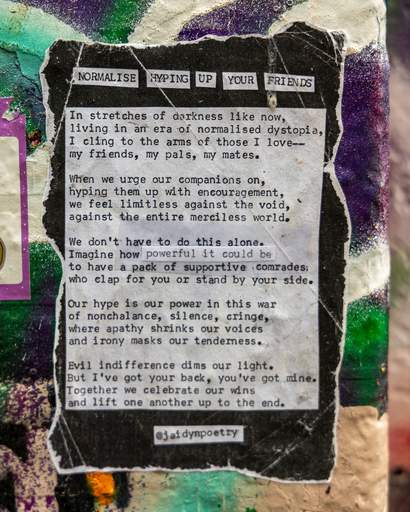 NORMALISE HYPING UP YOUR FRIENDS
In stretches of darkness like now,
living in an era of normalised dystopia,
I cling to the arms of those I love--
my friends, my pals, my mates.
When we urge our companions on,
hyping them up with encouragement,
we feel limitless against the void,
against the entire merciless world.
We don't have to do this alone.
Imagine how powerful it could be
to have a pack of supportive comrades
who clap for you or stand by your side.
Our hype is our power in this war
of nonchalance, silence, cringe,
where apathy shrinks our voices
and irony masks our tenderness.
Evil indifference dims our light.
But I've got your back, you've got mine.
Together we celebrate our wins
and lift one another up to the end.
@jaidynpoetry